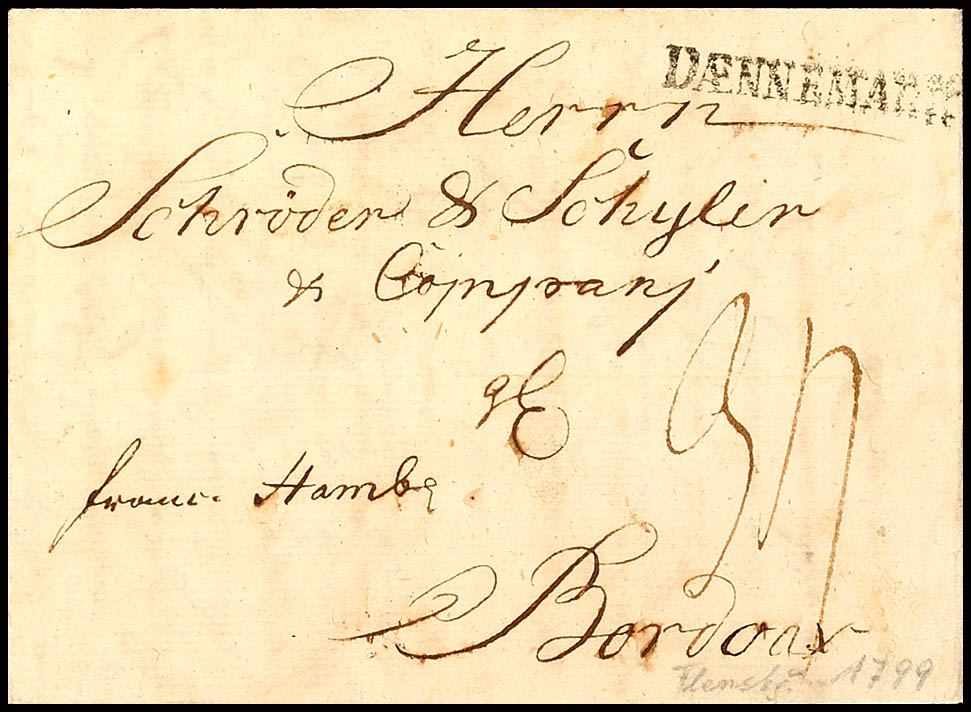 DÆNNEMARK
Herrn
Schröder & Schyler
& Companj
franc. Hambg
Bordoax
Flensbg. 1799